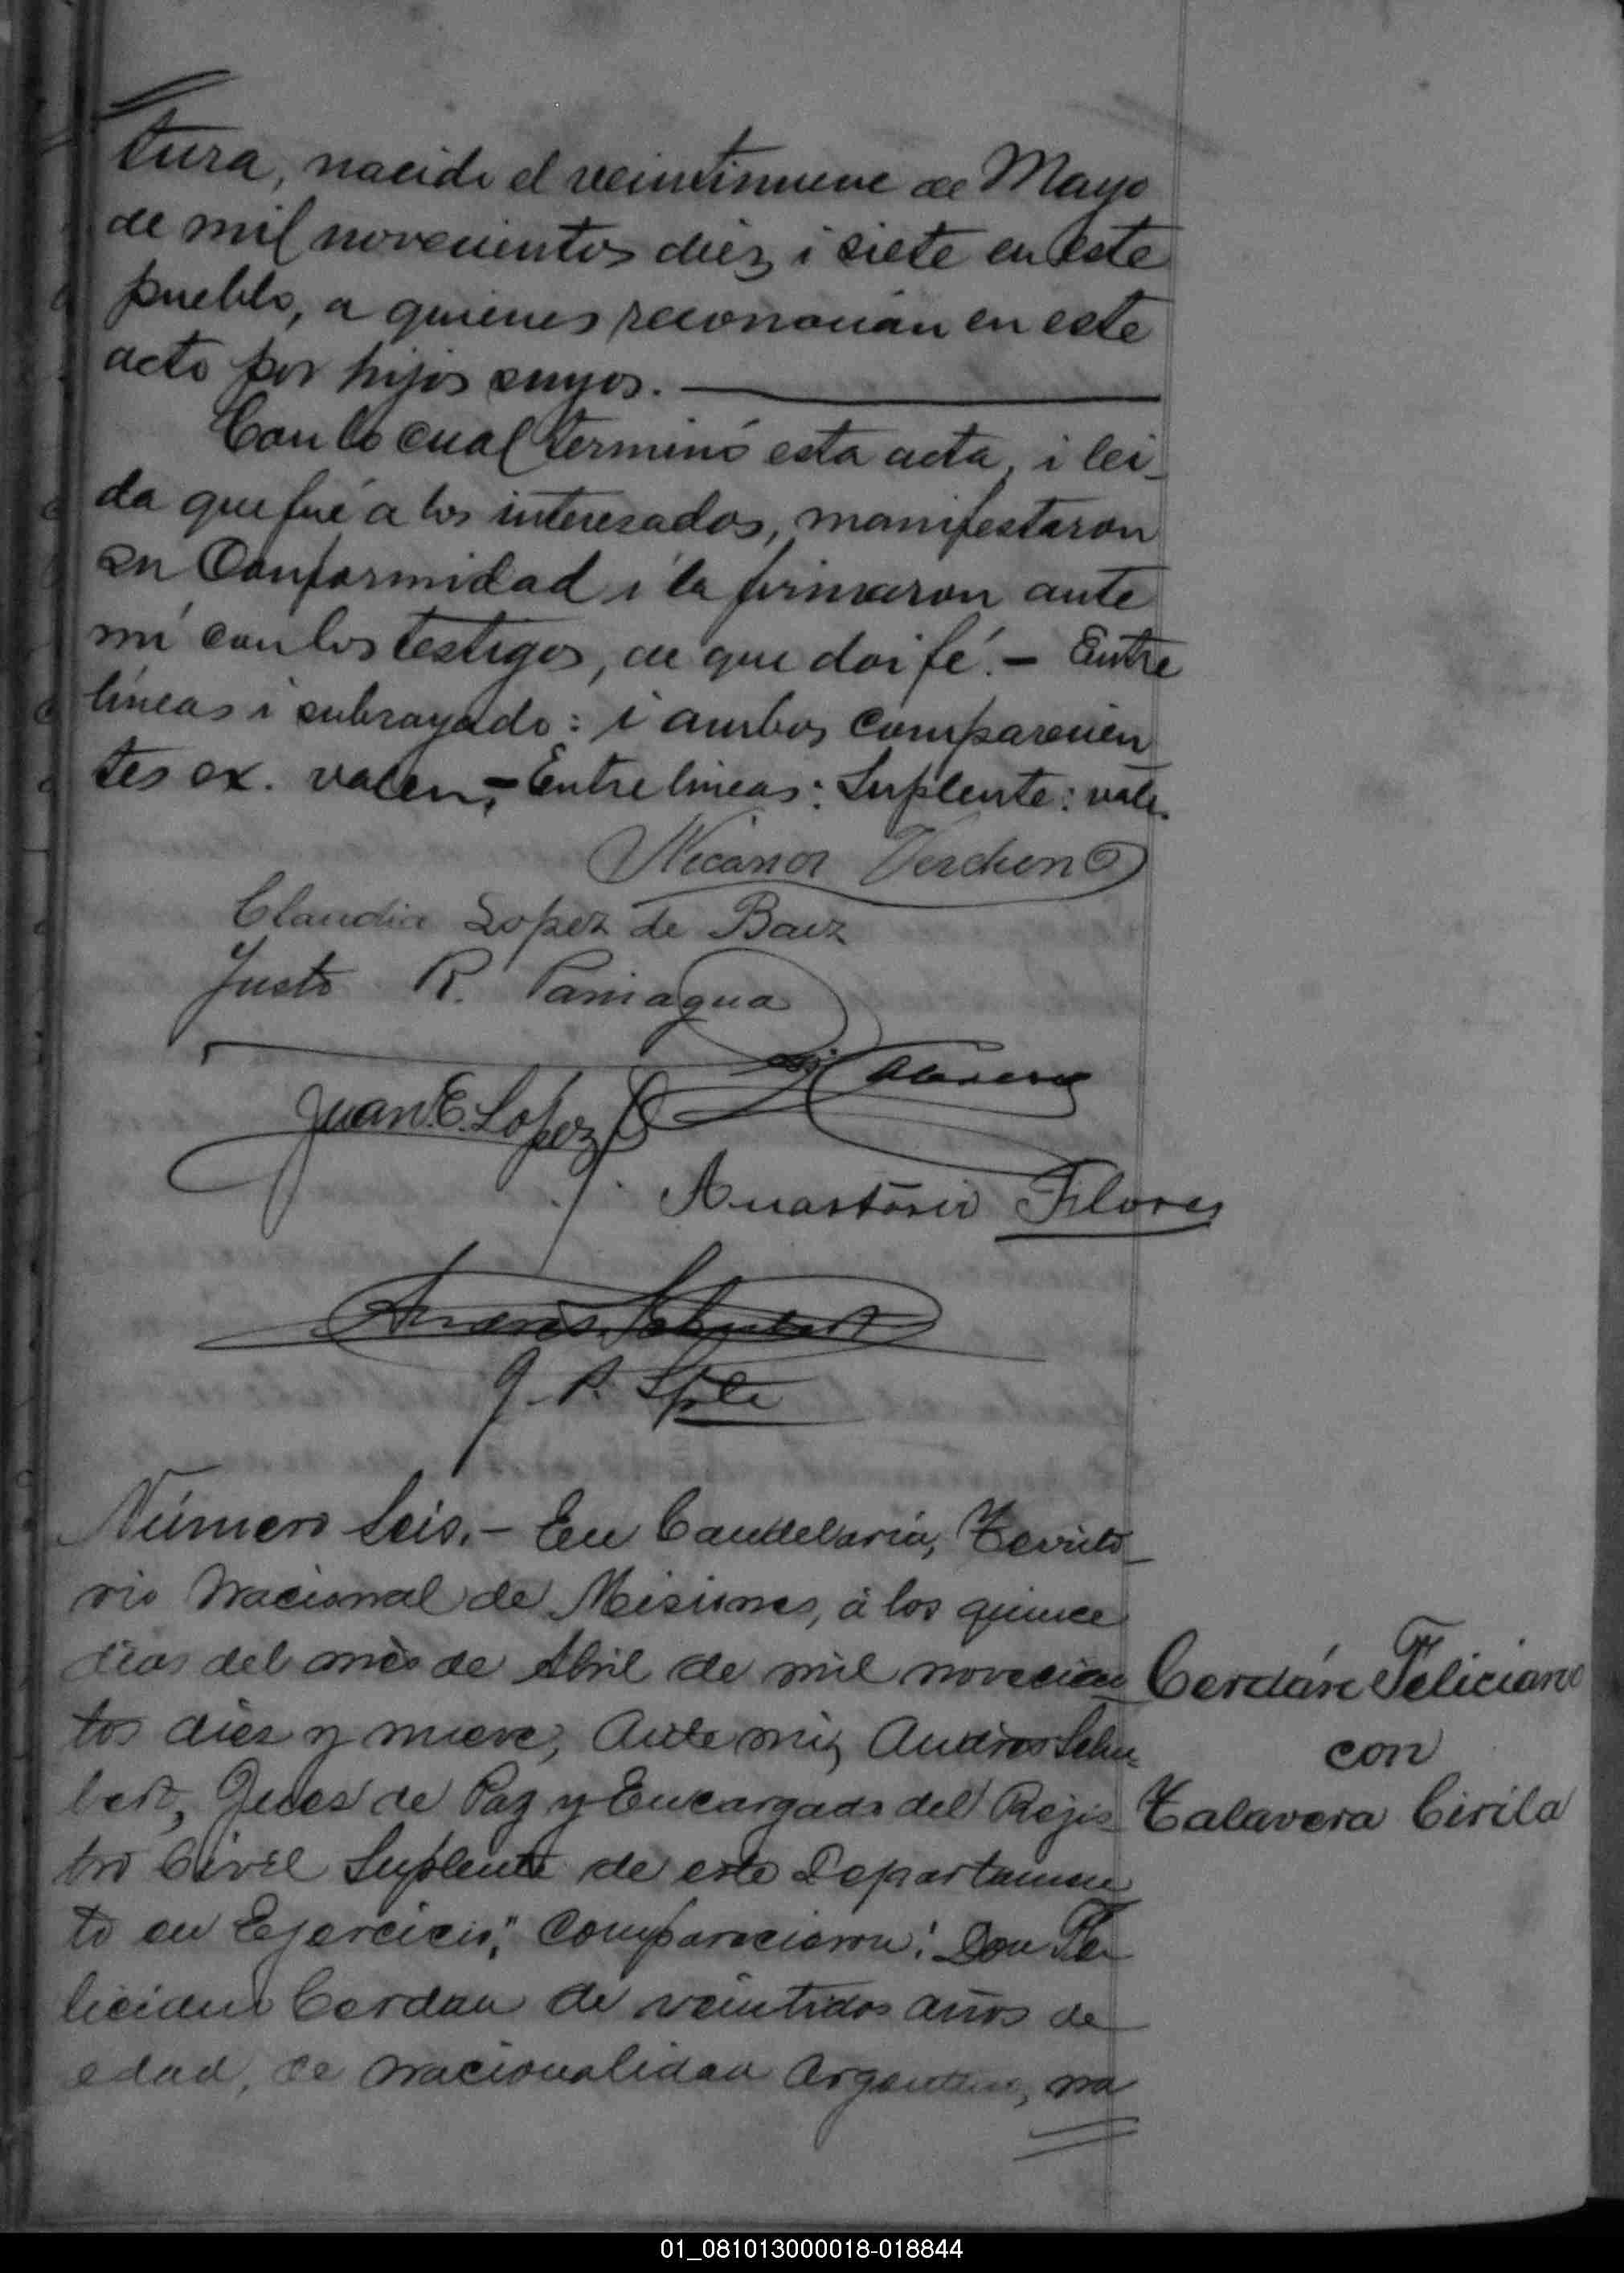 tura, nacido el veintinueve de Mayo
de mil novecientos diez i siete en este
pueblo, a quienes reconocian en este
acto por hijos suyos.
Con lo cual terminó esta acta, i lei-
da que fué a los interesados, manifestaron
su Conformidad i la firmaron ante
mi con los testigos, de que doi fé. - Entre
lineas i subrayado: i ambos comparecien
tes ex. valen, - Entre lineas: Suplente: vale.
Nicanor
Claudia Lopez de Baez
Justo R. Paniagua
Talavera
Juan E. Lopez
Anastasio Flores
Andrés Schubert
J. P. Splte
Número Seis. - En Candelaria, Territo-
rio Nacional de Misiones, á los quince
dias del més de Abril de mil novecien
tos diez y nueve, Ante mi, Andres Schu-
bert, Juez de Paz y Encargado del Rejis
tro Civil Suplente de este Departamen
to en Ejercicio, Comparecieron: Don Fe
liciano Cerdan de veintidos años de
edad, de nacionalidad Argentina, na
Cerdán Feliciano
con
Talavera Cirila
01_081013000018-018844